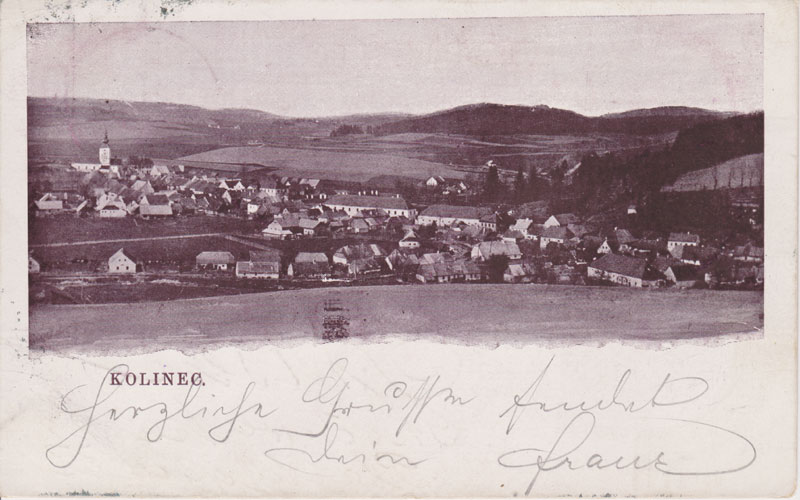 KOLINEC.
Herzliche Grüsse sendet
Dein Franz